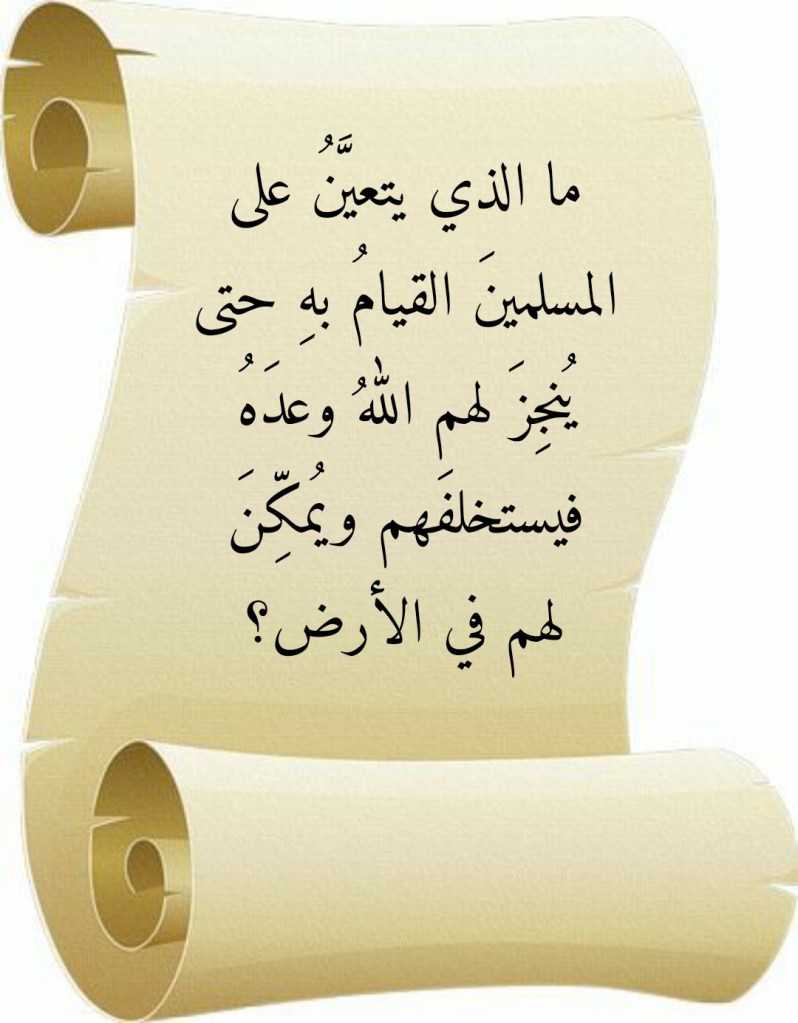 ما الذي يتعيَّنُ على
المسلمينَ القيامُ بهِ حتى
يُنجِزَ لهم اللهُ وعدَهُ
فيستخلفَهم ويُمكِّنَ
لهم في الأرض؟